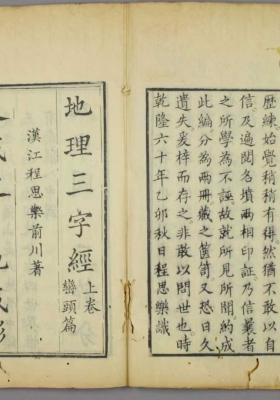 歷練始覺稍稍有得猶不敢以自
信及遍閱各墳兩相印証乃信曩者
之所學為不誣故就所見所聞約成
此編分為兩冊藏之篋笥又恐日久
遺失爰梓而存之非敢以問世也時
乾隆六十年乙卯秋日程思樂識
地理三字經 上卷 巒頭篇
漢江程思樂前川著